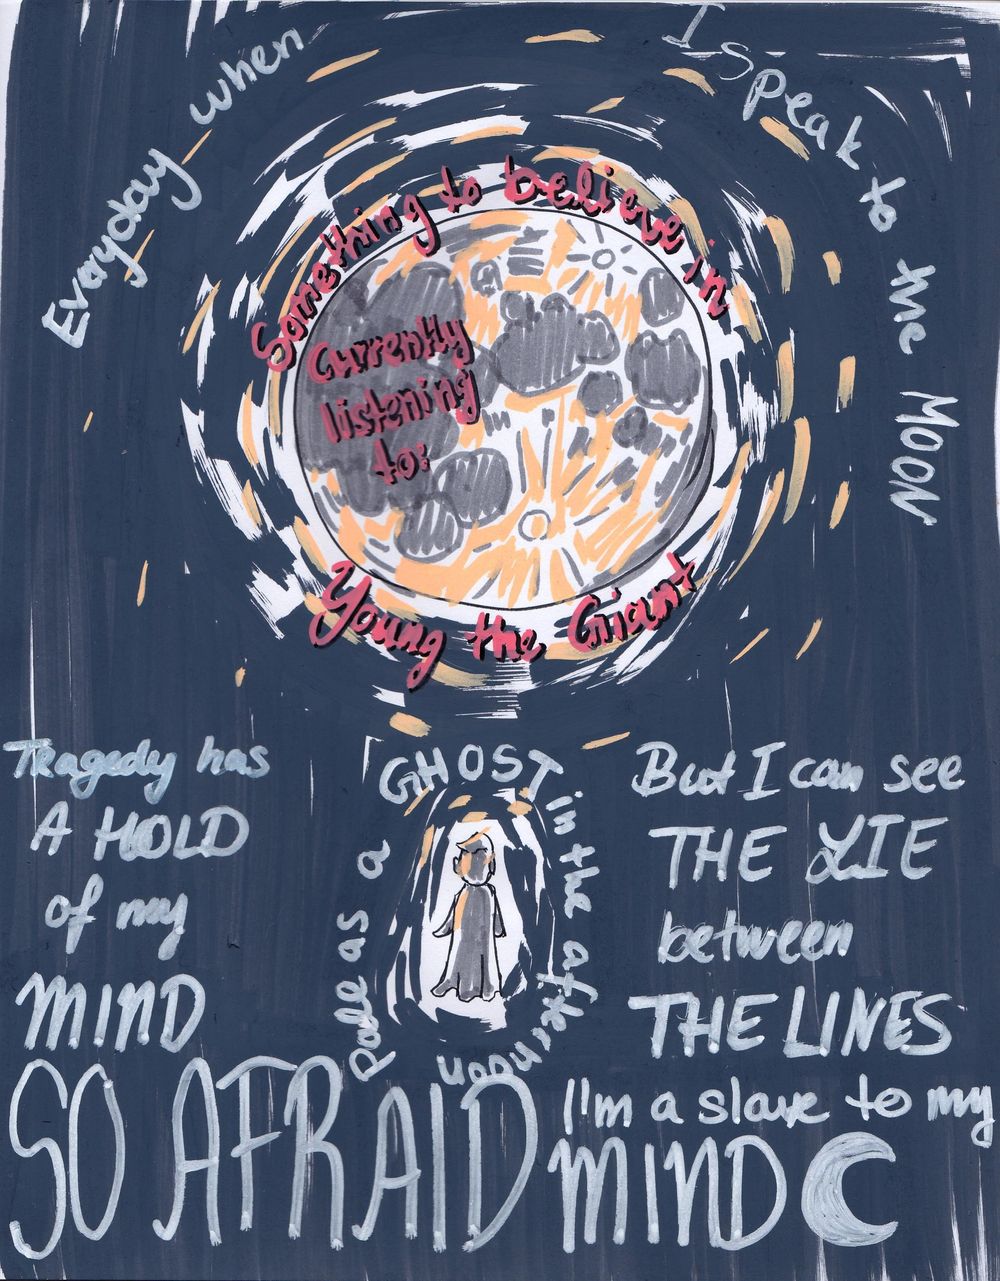 Everyday when
I Speak to the MOON
Something to believe in
Currently
listening
to:
Young the Giant
Tragedy has
A HOLD
of my
MIND
Pale as a
GHOST
in the afternoon
But I can see
THE LIE
between
THE LINES
SO AFRAID
I'm a slave to my
MIND